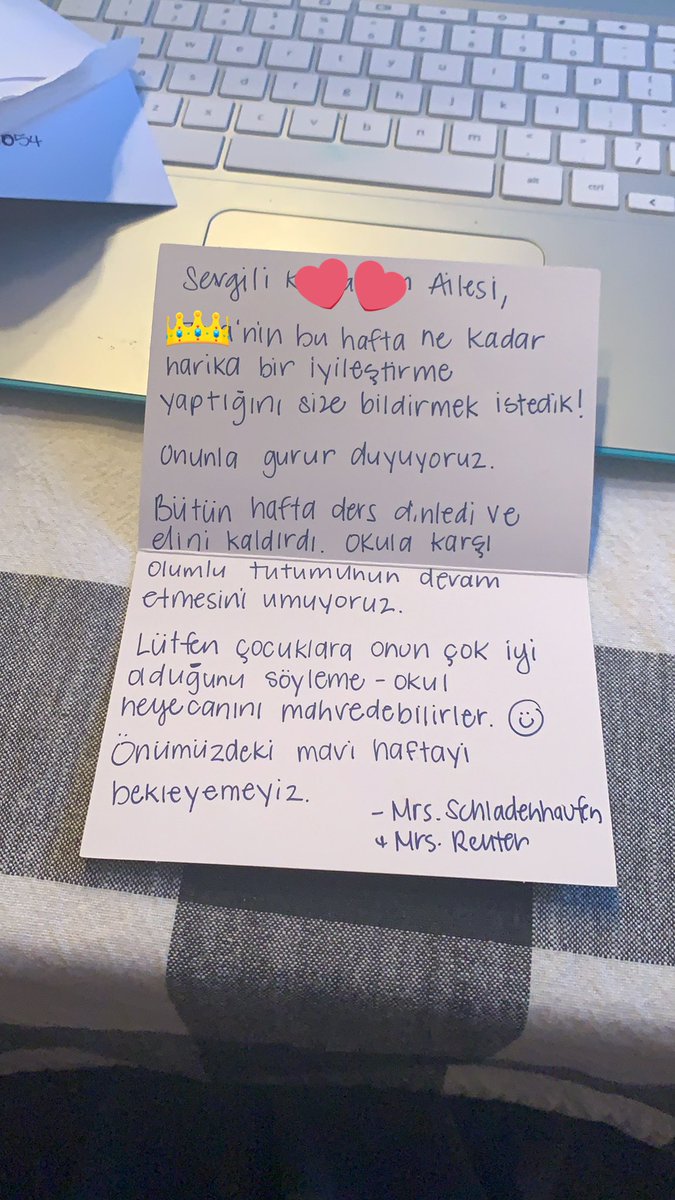 054
Sevgili Ailesi,
'nin bu hafta ne kadar
harika bir iyileştirme
yaptığını size bildirmek istedik!
Onunla gurur duyuyoruz.
Bütün hafta ders dinledi ve
elini kaldırdı. Okula karşı
olumlu tutumunun devam
etmesini umuyoruz.
Lütfen çocuklara onun çok iyi
olduğunu söyleme - okul
heyecanını mahvedebilirler.
Önümüzdeki mavi haftayi
bekleyemeyiz.
- Mrs. Schladenhaufen
+ Mrs. Reuter